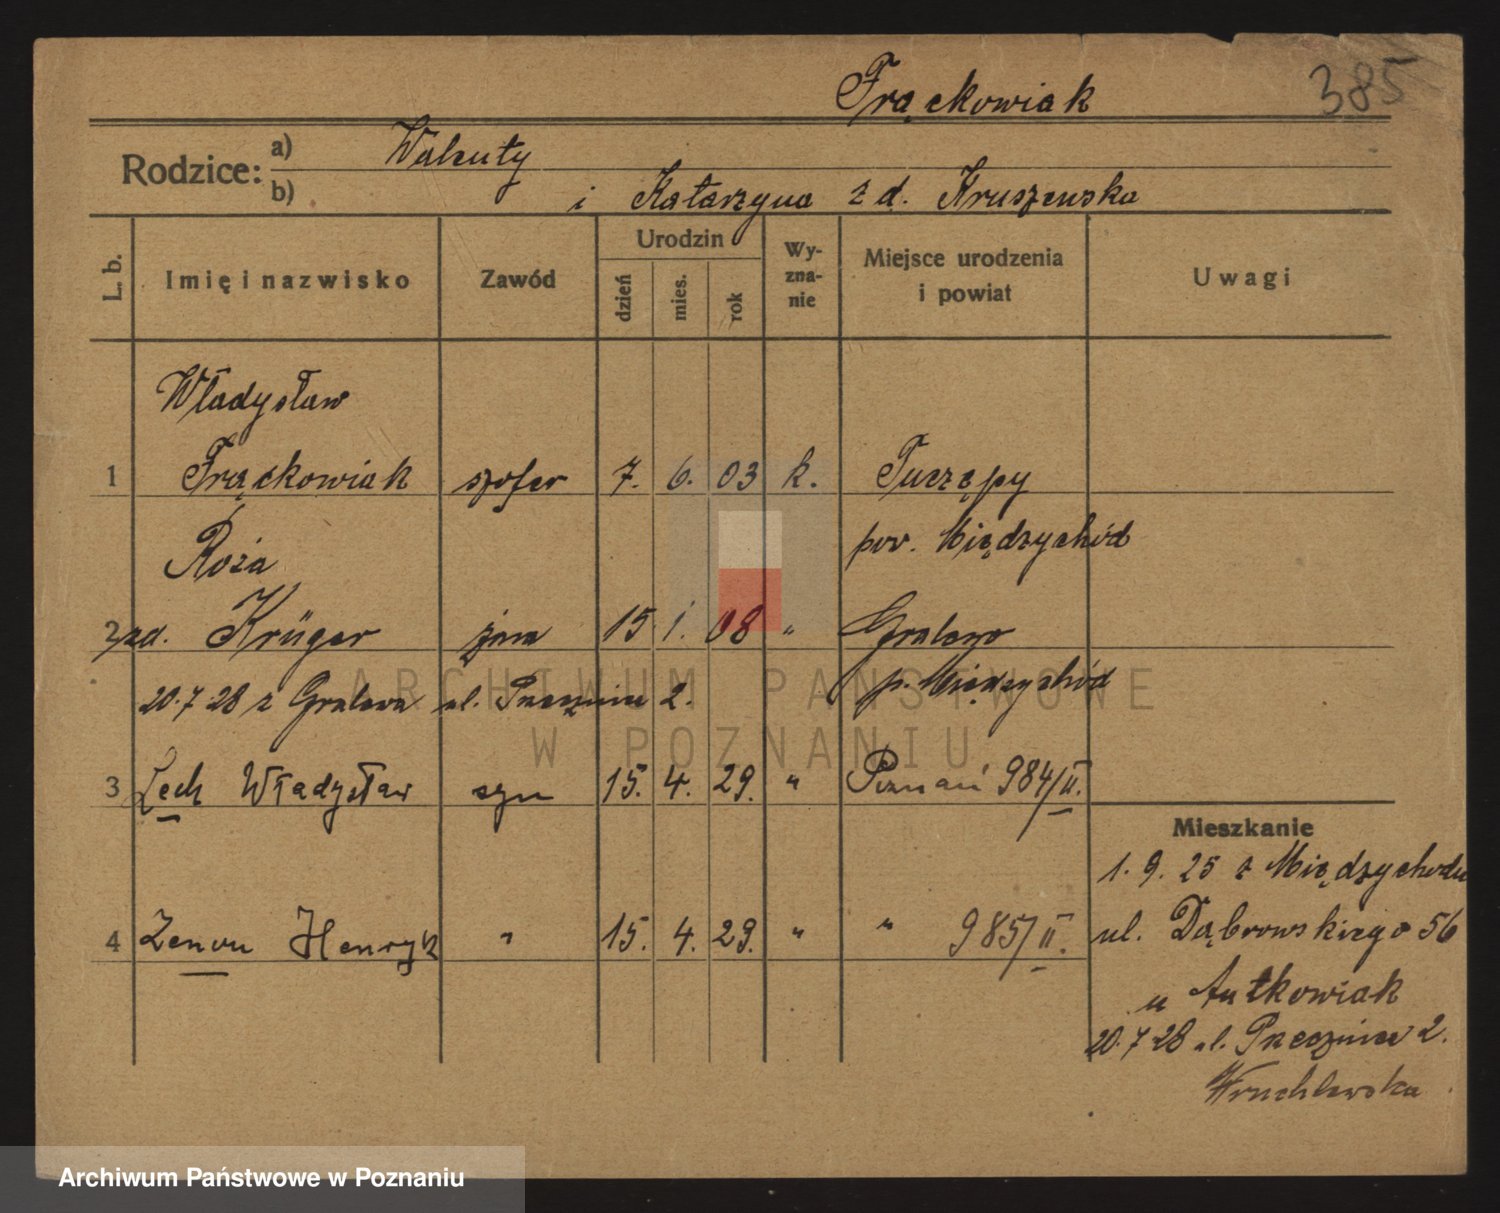 Frąckowiak
385
Rodzice:
a) Walenty
b) i Katarzyna z d. Kruszewska
L. b.
Imię i nazwisko
Zawód
Urodzin
dzień
mies.
rok
Wy-
zna-
nie
Miejsce urodzenia
i powiat
Uwagi
Władysław
1 Frąckowiak szofer 7. 6. 03 k. Turzępy
Róża pow. Międzychód
2 zd. Krüger żona 15 1. 08 " Gralewo
20.7.28 z Gralewa ul. 2. p. Międzychód
3 Lech Władysław syn 15. 4. 29. " Poznań 984/II.
4 Zenon Henryk " 15. 4. 29. " " 985/II.
Mieszkanie
1. 9. 25 z Międzychodu
ul. Dąbrowskiego 56
u Antkowiak
20.7.28 ul. 2.
Wruchlewska
ARCHIWUM PAŃSTWOWE
W POZNANIU
Archiwum Państwowe w Poznaniu